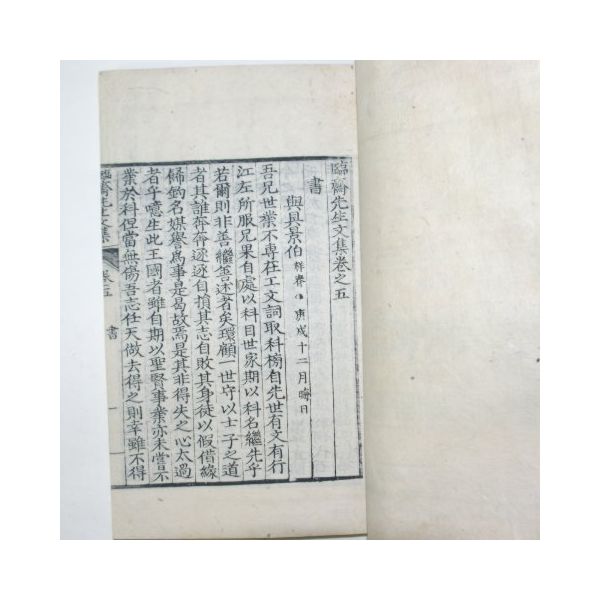 臨齋先生文集卷之五
書
與具景伯 庚戌十二月晦日
吾兄世業不專在工文詞取科榜自先世有文有行
江左所服兄果自處以科目世家期以科名繼先乎
若爾則非善繼善述者矣環顧一世守以士子之道
者其誰奔奔逐逐自損其志自敗其身徒以假借緣
飾釣名媒譽爲事是曷故焉是其非得失之心太過
者乎噫生此王國者雖自期以聖賢事業亦未嘗不
業於科但當無傷吾志任天做去得之則幸雖不得
臨齋先生文集 卷之五 書 一